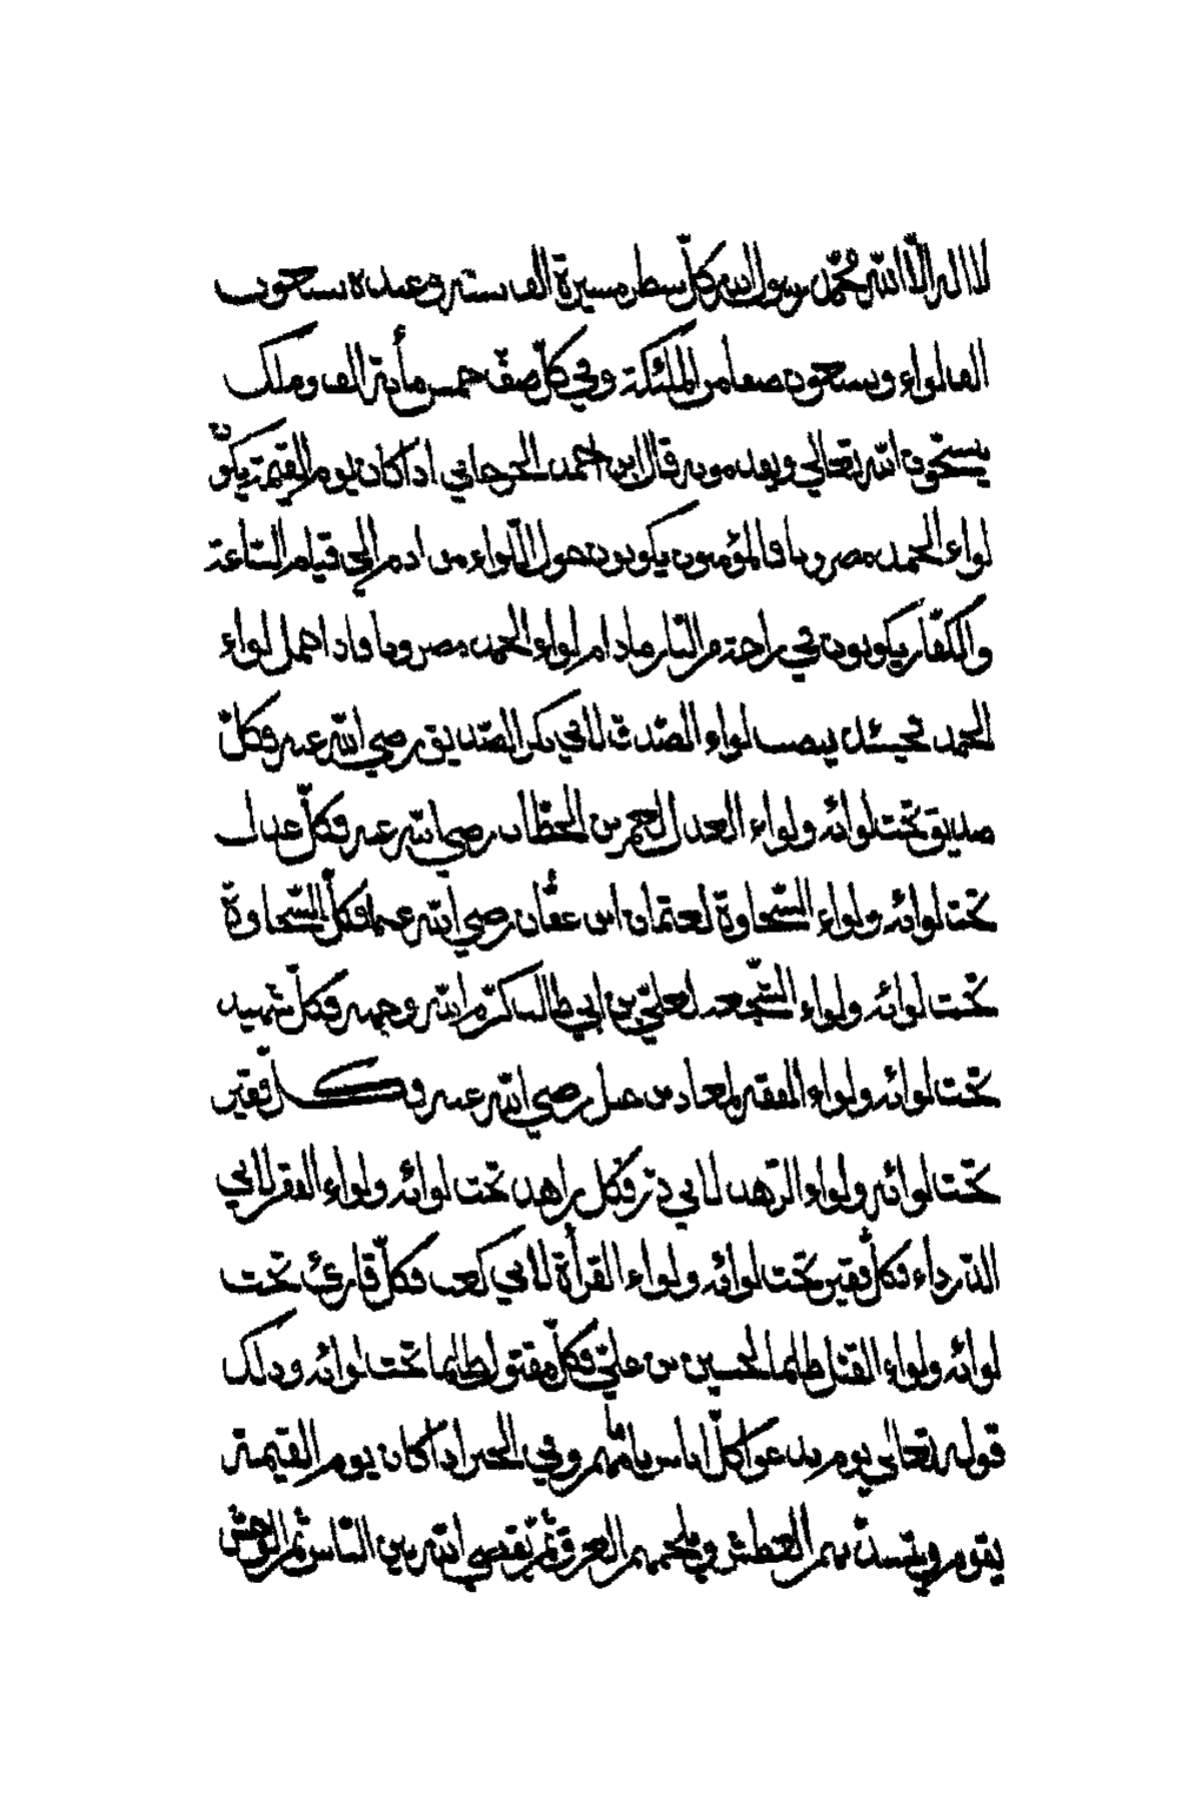 لا اله الّا الله محُمّد رسول الله كلّ سطر مسيرة الف سنة وعنده سبعون
الف لواء وسبعون صفا من الملئكة وفي كلّ صفّ خمس مأية الف وملك
يسبحون الله تعالى ويقدسونه قال ابن احمد الجرجاني اذا كان يوم القيمة يكون
لواء الحمد مضروبا والمؤمنون يكونون حول اللّواء من ادم الى قيام السّاعة
والكفّار يكونون في راحة من النّار مادام لواء الحمد مضروبا واذا حمل لواء
الحمد فحينئذ ينصب لواء الصّدق لابي بكر الصّديق رضي الله عنه فكلّ
صديق تحت لوائه ولواء العدل لعمر بن الخطّاب رضي الله عنه فكلّ عدل
تحت لوائه ولواء السّخاوة لعثمان ابن عفّان رضي الله عنهما فكلّ السّخاوة
تحت لوائه ولواء الشّجعه لعليّ بن ابي طالب كرّم الله وجهه فكلّ شهيد
تحت لوائه ولواء الفقه لمعاد بن جبل رضي الله عنه فكلّ فقير
تحت لوائه ولواء الزّهد لابي ذرّ فكل زاهد تحت لوائه ولواء الفقر لابي
الدّرداء فكلّ فقير تحت لوائه ولواء القرأة لابي كعب فكلّ قارئ تحت
لوائه ولواء القتل ظلما لحسين بن عليّ فكلّ مقتول ظلما تحت لوائه وذلك
قوله تعالى يوم ندعوا كلّ اناس بامامهم وفي الخبر اذا كان يوم القيمة
يقوم ويشتدّ بهم العطش ويلجمهم العرق ثمّ يقضي الله بين الناس ثمّ الوحش